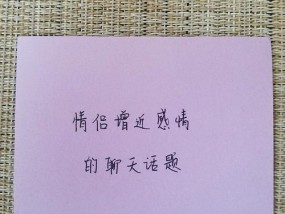 情侣增近感情
的聊天话题